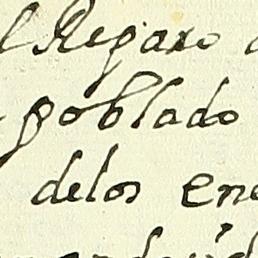 l Reparo
poblado
delos ene